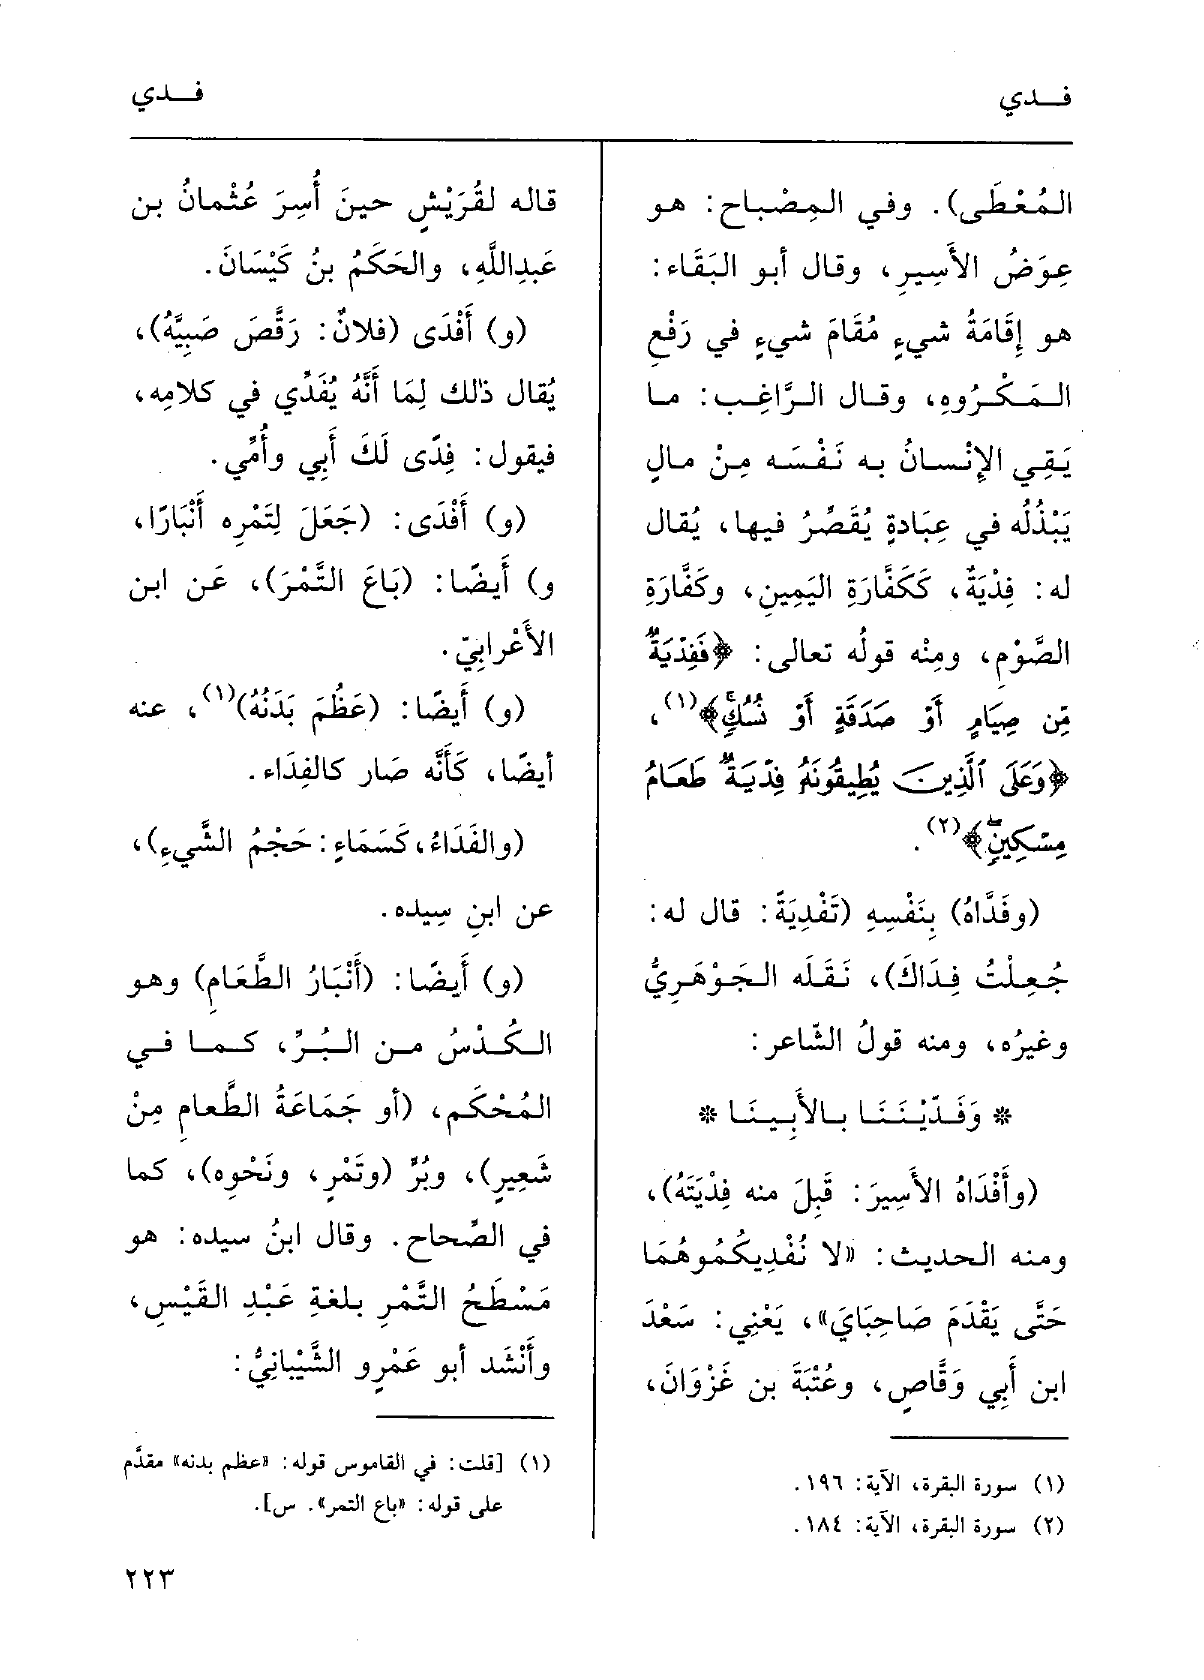 فـدي
فـدي
المُعْطَى). وفي المِصْباح: هو
عِوَضُ الأَسِيرِ، وقال أبو البَقَاء:
هو إِقَامَةُ شيءٍ مُقَامَ شيءٍ في رَفْعِ
المَكْرُوهِ، وقال الرَّاغِب: ما
يَقِي الإِنْسانُ به نَفْسَه مِنْ مالٍ
يَبْذُلُه في عِبَادةٍ يُقَصِّرُ فيها، يُقال
له: فِدْيَةٌ، كَكَفَّارَةِ اليَمِينِ، وكَفَّارَةِ
الصَّوْمِ، ومِنْه قولُه تعالى: ﴿فَفِدْيَةٌ
مِّن صِيَامٍ أَوْ صَدَقَةٍ أَوْ نُسُكٍۚ﴾(١)،
﴿وَعَلَى ٱلَّذِينَ يُطِيقُونَهُۥ فِدْيَةٌ طَعَامُ
مِسْكِينٍۖ﴾(٢).
(وفَدَّاهُ) بِنَفْسِهِ (تَفْدِيَةً: قال له:
جُعِلْتُ فِدَاكَ)، نَقَلَه الجَوْهَرِيُّ
وغيرُه، ومنه قولُ الشّاعر:
* وَفَدَّيْنَنَا بالأَبِينَا *
(وأَفْدَاهُ الأَسِيرَ: قَبِلَ منه فِدْيَتَهُ)،
ومنه الحديث: «لا نُفْدِيكُمُوهُمَا
حَتَّى يَقْدَمَ صَاحِبَايَ»، يَعْنِي: سَعْدَ
ابن أَبِي وَقَّاصٍ، وعُتْبَةَ بن غَزْوَانَ،
(١) سورة البقرة، الآية: ١٩٦.
(٢) سورة البقرة، الآية: ١٨٤.
قاله لقُرَيْشٍ حينَ أُسِرَ عُثْمانُ بن
عَبدِاللَّهِ، والحَكَمُ بنُ كَيْسَانَ.
(و) أَفْدَى (فلانٌ: رَقَّصَ صَبِيَّهُ)،
يُقال ذلك لِمَا أَنَّهُ يُفَدِّي في كلامِه،
فيقول: فِدًى لَكَ أَبِي وأُمِّي.
(و) أَفْدَى: (جَعَلَ لِتَمْرِه أَنْبَارًا،
و) أَيضًا: (بَاعَ التَّمْرَ)، عَن ابن
الأَعْرابِيّ.
(و) أَيضًا: (عَظُمَ بَدَنُهُ)(١)، عنه
أيضًا، كَأَنَّه صَار كالفِدَاء.
(والفَدَاءُ، كَسَمَاءٍ: حَجْمُ الشَّيءِ)،
عن ابنِ سِيدَه.
(و) أَيضًا: (أَنْبَارُ الطَّعَامِ) وهو
الكُدْسُ من البُرِّ، كما في
المُحْكَمِ، (أو جَمَاعَةُ الطَّعامِ مِنْ
شَعِيرٍ)، وبُرٍّ (وتَمْرٍ، ونَحْوِه)، كما
في الصِّحاح. وقال ابنُ سيده: هو
مَسْطَحُ التَّمْرِ بلغةِ عَبْدِ القَيْسِ،
وأَنْشَد أبو عَمْرٍو الشَّيْبانِيُّ:
(١) [قلت: في القاموس قوله: «عظم بدنه» مقدَّم
على قوله: «باع التمر». س].
٢٢٣